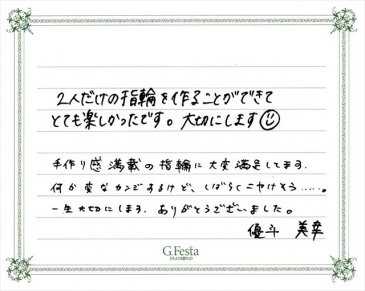 2人だけの指輪を作ることができて
とても楽しかったです。大切にします
手作り感満載の指輪に大変満足してます。
何か変なカンジするけど、しばらくニヤけそう……。
一生大切にします。ありがとうございました。
優斗 美幸
G.Festa
DIAMOND